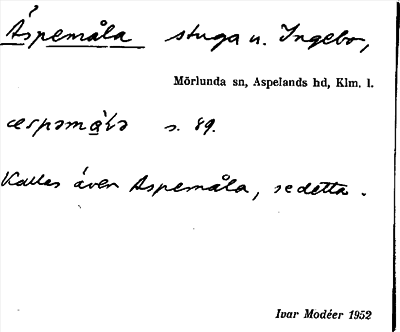 Äspemåla stuga u. Ingebo,
Mörlunda sn, Aspelands hd, Klm. l.
s. 89.
Kallas även Aspemåla, se detta.
Ivar Modéer 1952